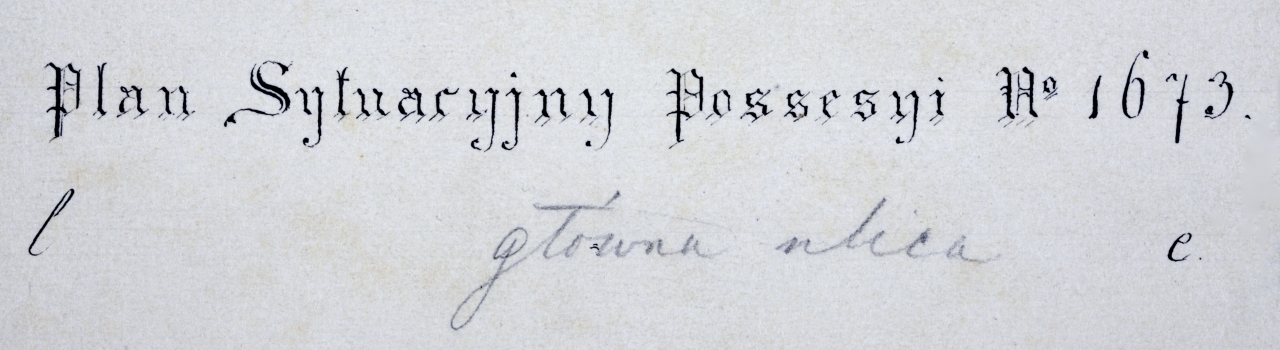 Plan Sytuacyjny Possesyi No 1673.
l główna ulica e.